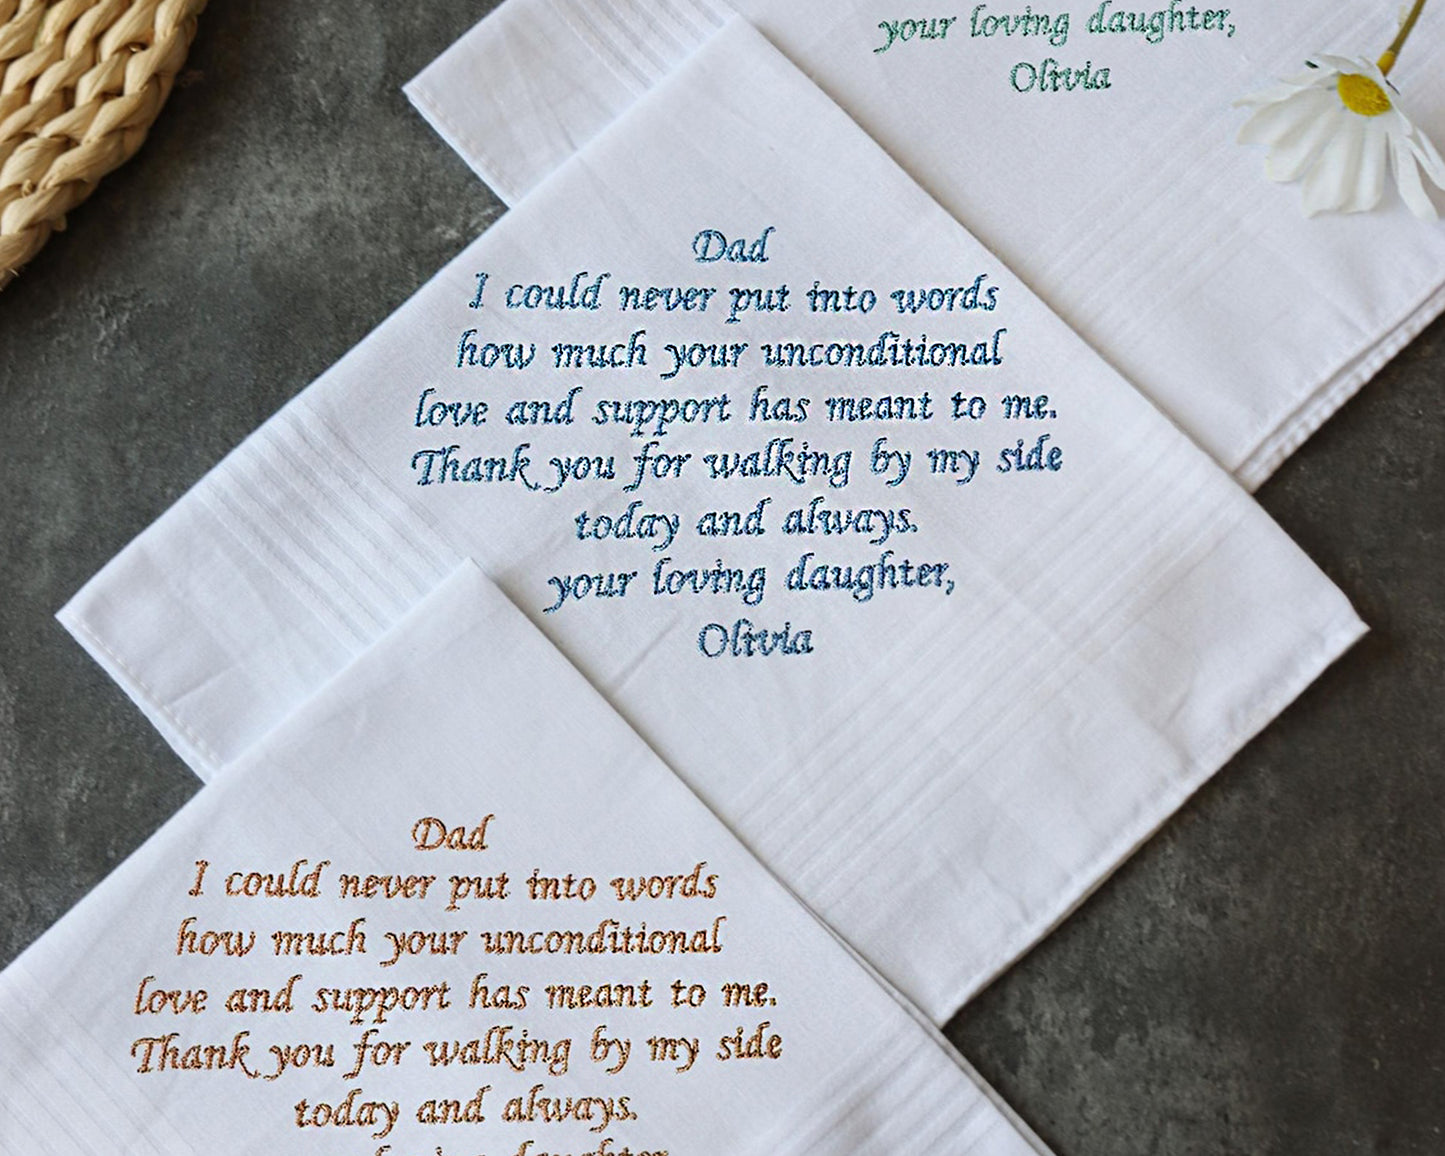 your loving daughter,
Olivia
Dad
I could never put into words
how much your unconditional
love and support has meant to me.
Thank you for walking by my side
today and always.
your loving daughter,
Olivia
Dad
I could never put into words
how much your unconditional
love and support has meant to me.
Thank you for walking by my side
today and always.
loving daughter